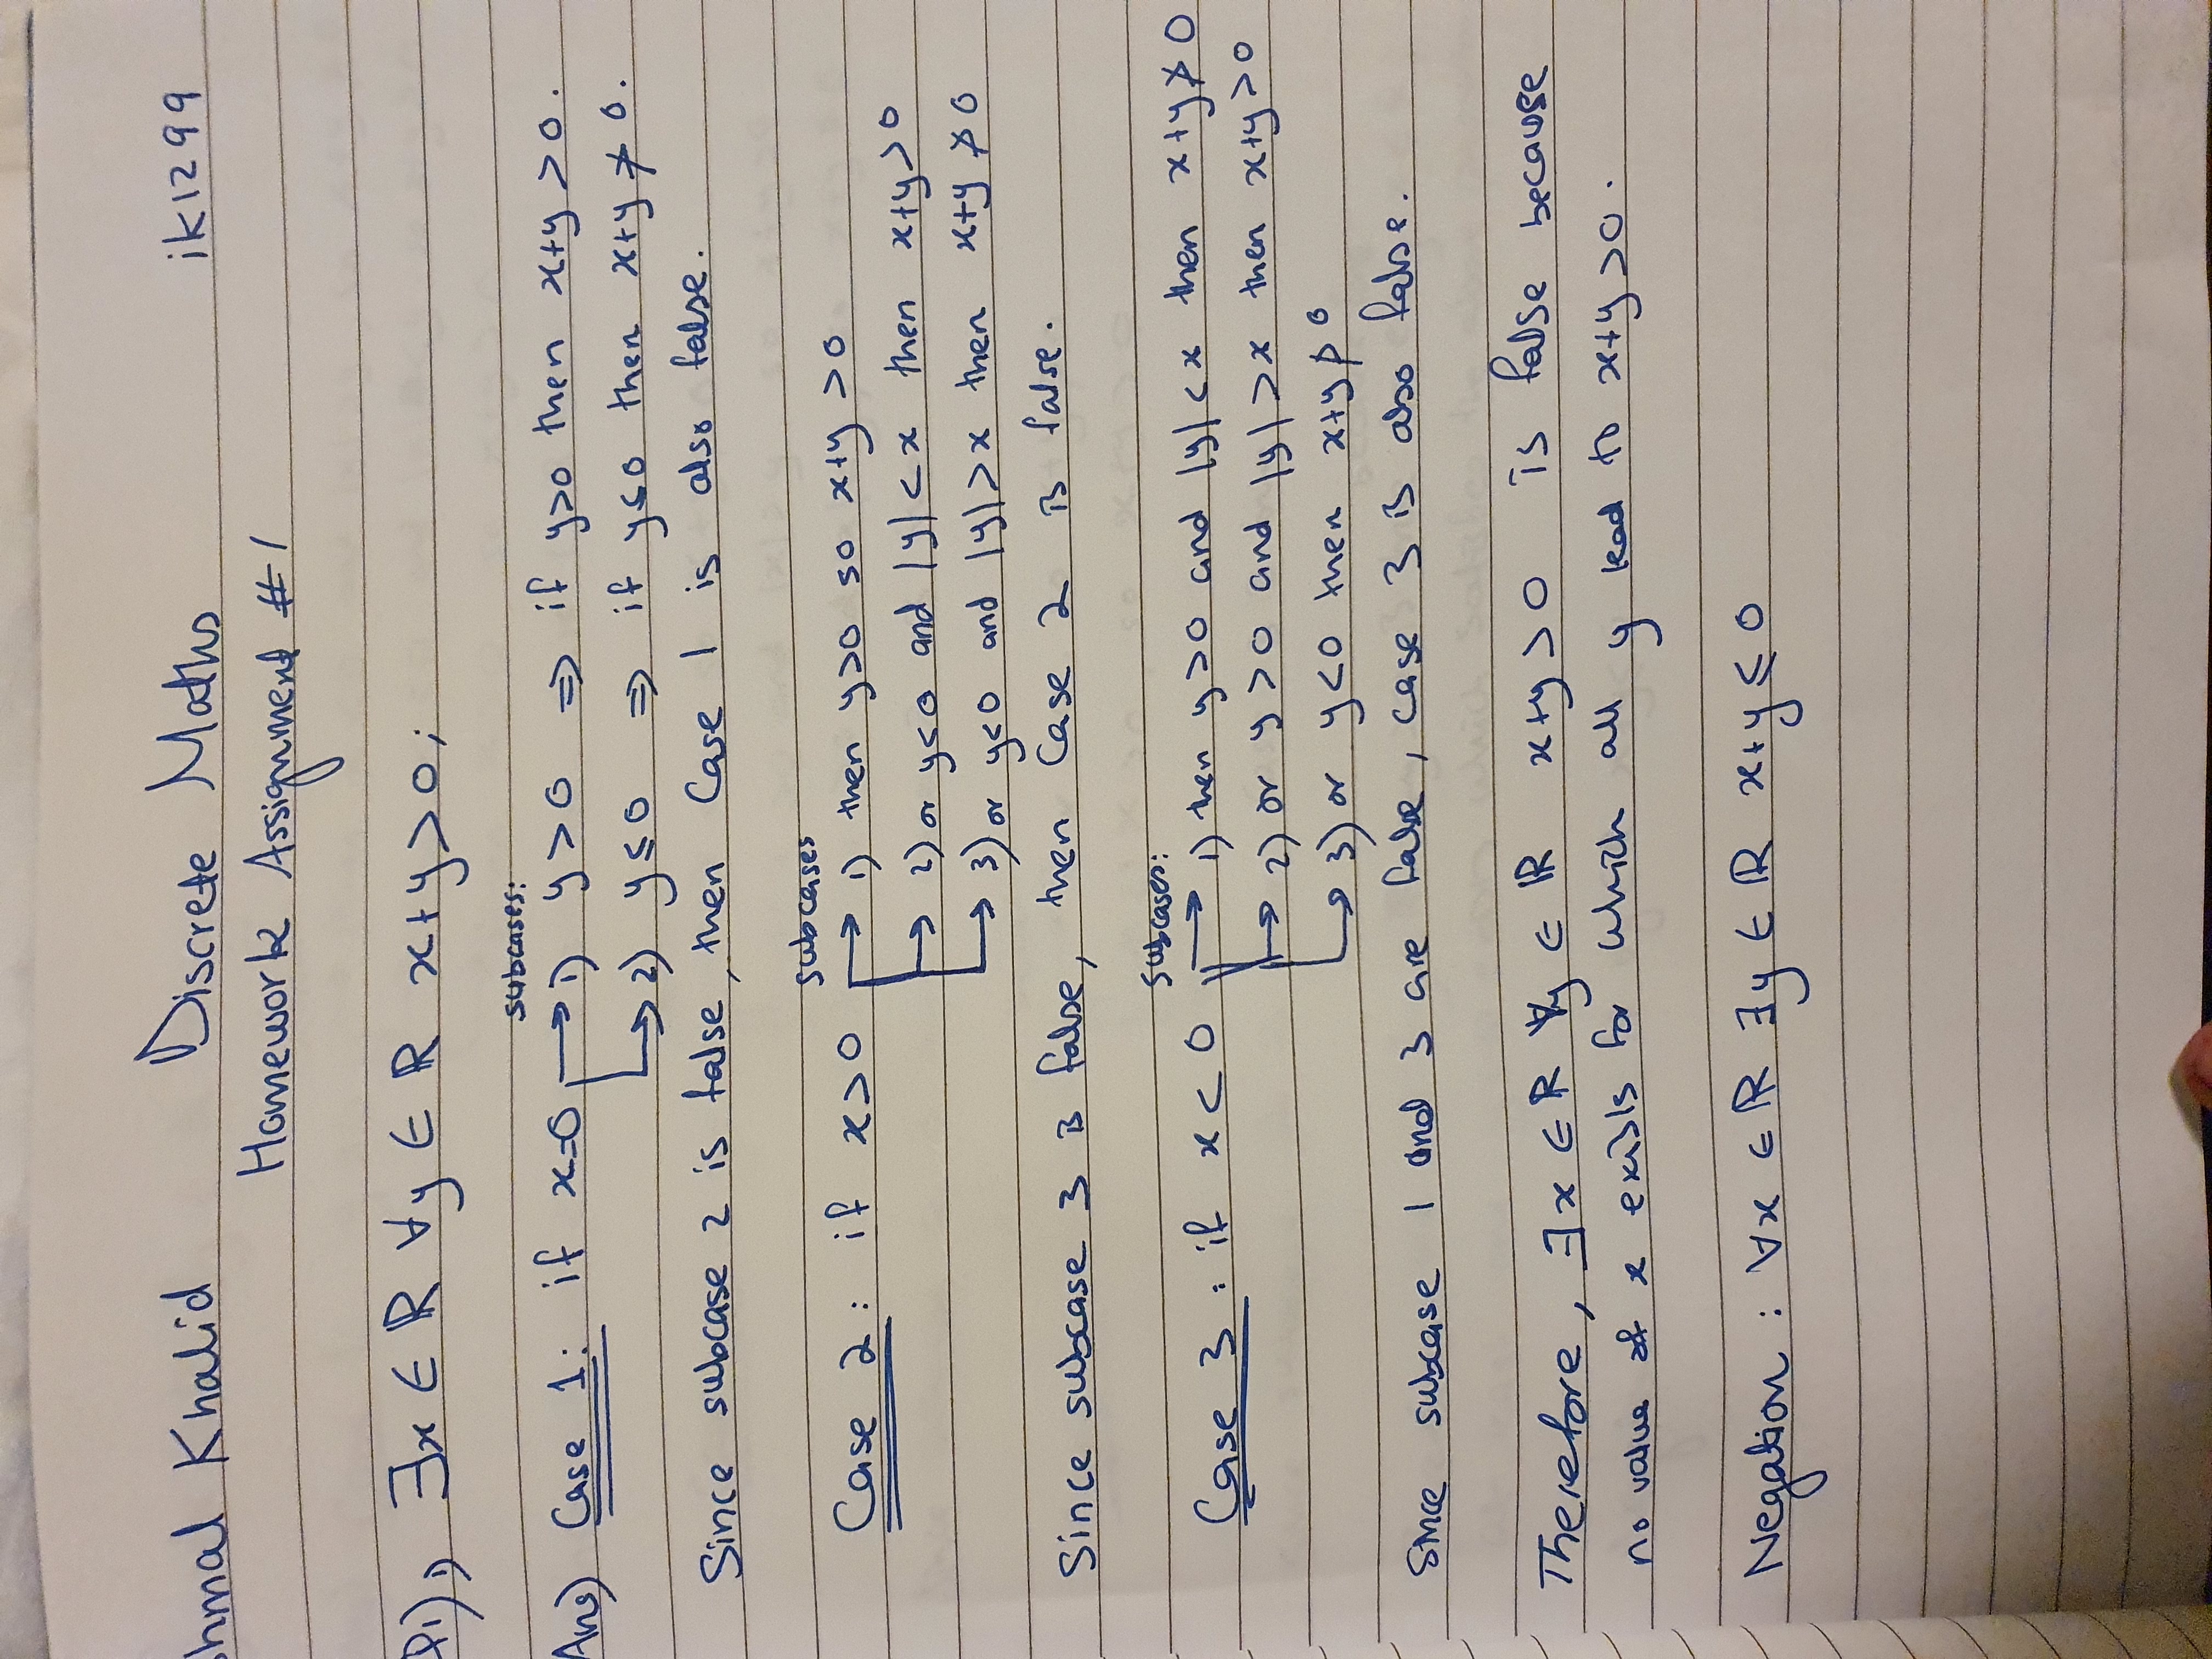 hmal Khalid Discrete Maths ik1299
Homework Assignment #1
Q1) 1) ∃x ∈ ℝ ∀y ∈ ℝ x+y>0;
subcases:
Ans) Case 1: if x=0 → 1) y>0 ⇒ if y>0 then x+y>0.
→ 2) y≤0 ⇒ if y≤0 then x+y≯0.
Since subcase 2 is false, then Case 1 is also false.
subcases
Case 2: if x>0 → 1) then y>0 so x+y>0
→ 2) or y<0 and |y|<x then x+y>0
→ 3) or y<0 and |y|>x then x+y≯0
Since subcase 3 is false, then Case 2 is false.
Subcases:
Case 3: if x<0 → 1) then y>0 and |y|<x then x+y≯0
→ 2) or y>0 and |y|>x then x+y>0
→ 3) or y<0 then x+y≯0
Since subcase 1 and 3 are false, case 3 is also false.
Therefore, ∃x ∈ ℝ ∀y ∈ ℝ x+y>0 is false because
no value of x exists for which all y lead to x+y>0.
Negation: ∀x ∈ ℝ ∃y ∈ ℝ x+y≤0